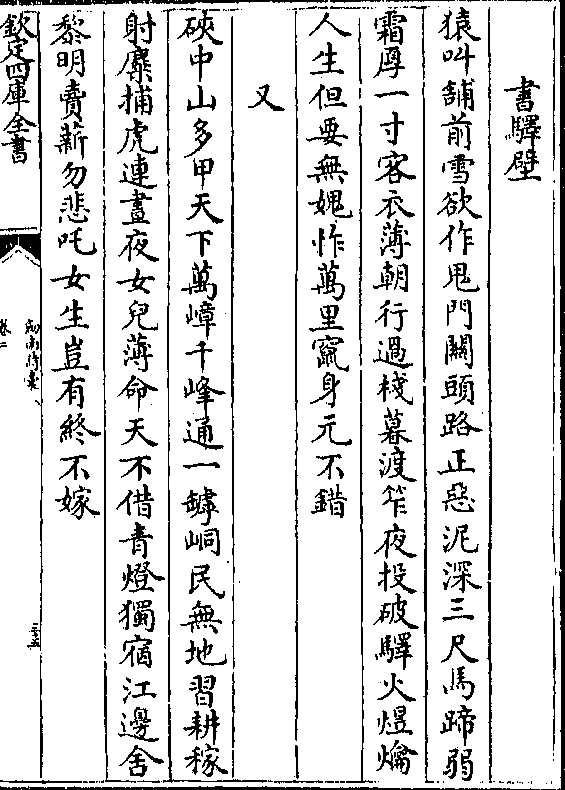 書驛壁
猿叫舖前雪欲作鬼門關頭路正惡泥深三尺馬蹄弱
霜厚一寸客衣薄朝行過棧暮渡笮夜投破驛火煜爚
人生但要無媿怍萬里竄身元不錯
又
硤中山多甲天下萬嶂千峰通一罅峒民無地習耕稼
射麋捕虎連晝夜女兒薄命天不借青燈獨宿江邊舍
黎明賣薪勿悲吒女生豈有終不嫁
欽定四庫全書
劍南詩稾
卷二
二十五